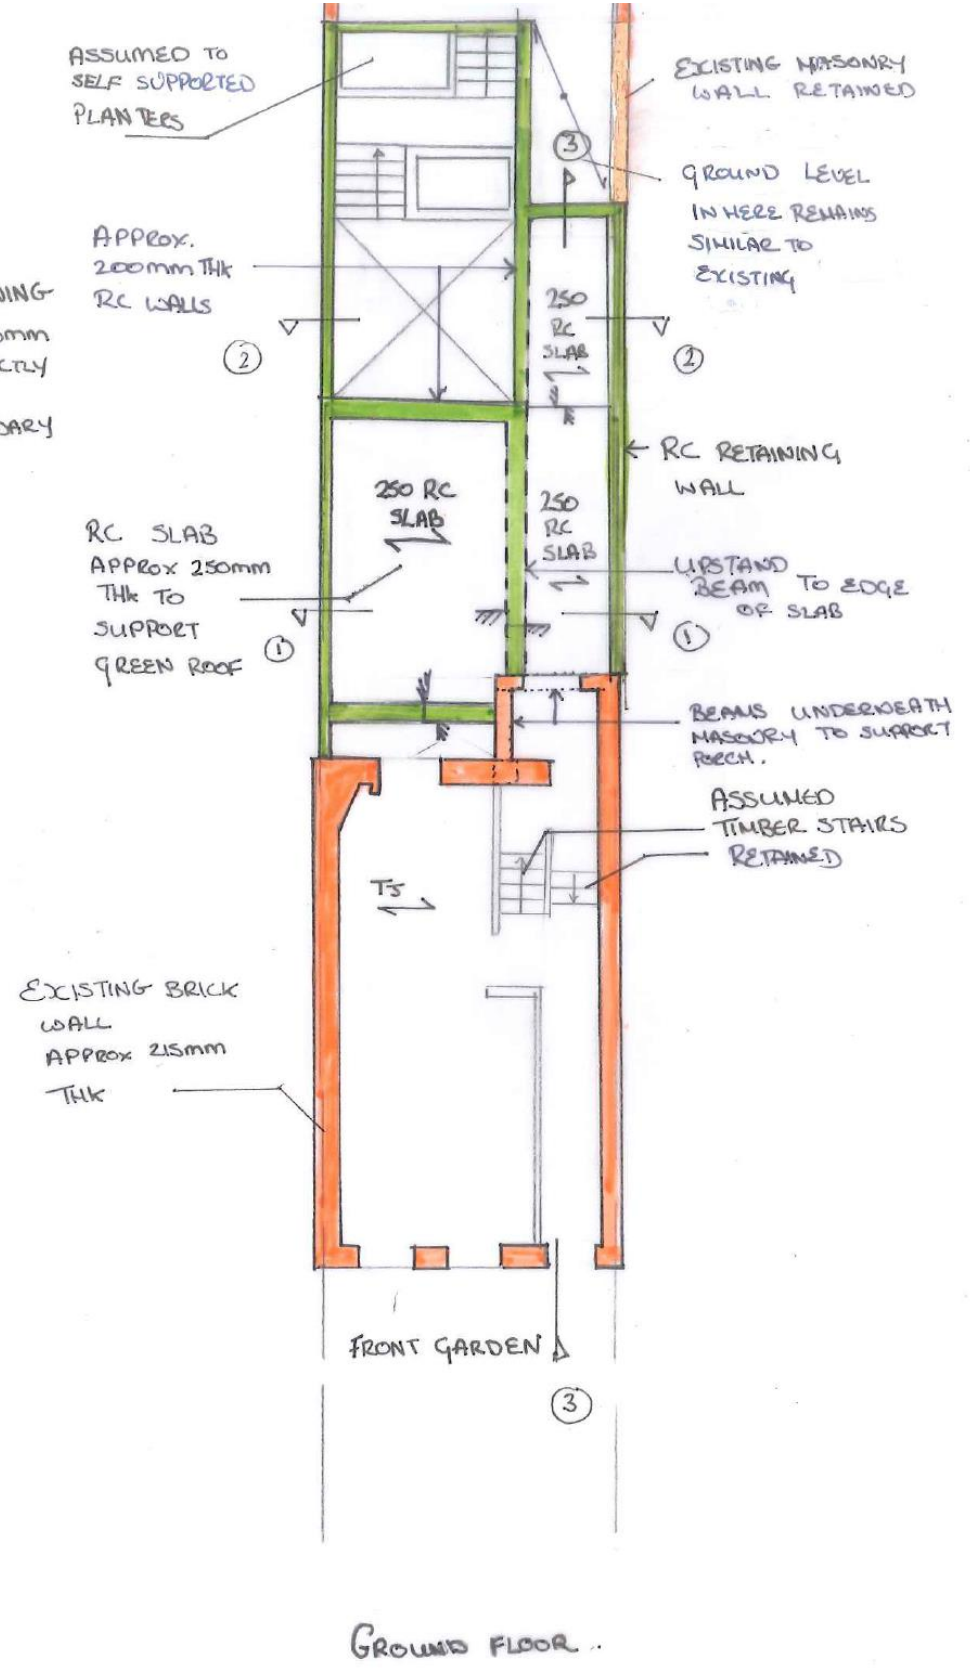 ASSUMED TO
SELF SUPPORTED
PLANTERS
EXISTING MASONRY
WALL RETAINED
3
GROUND LEVEL
IN HERE REMAINS
SIMILAR TO
EXISTING
APPROX.
200mm THK
RC WALLS
250
RC
SLAB
2
2
RC RETAINING
WALL
250 RC
SLAB
250
RC
SLAB
RC SLAB
APPROX 250mm
THK TO
SUPPORT
GREEN ROOF
UPSTAND
BEAM TO EDGE
OF SLAB
1
1
BEAMS UNDERNEATH
MASONRY TO SUPPORT
PORCH.
ASSUMED
TIMBER STAIRS
RETAINED
TJ
EXISTING BRICK
WALL
APPROX 215mm
THK
FRONT GARDEN
3
GROUND FLOOR.